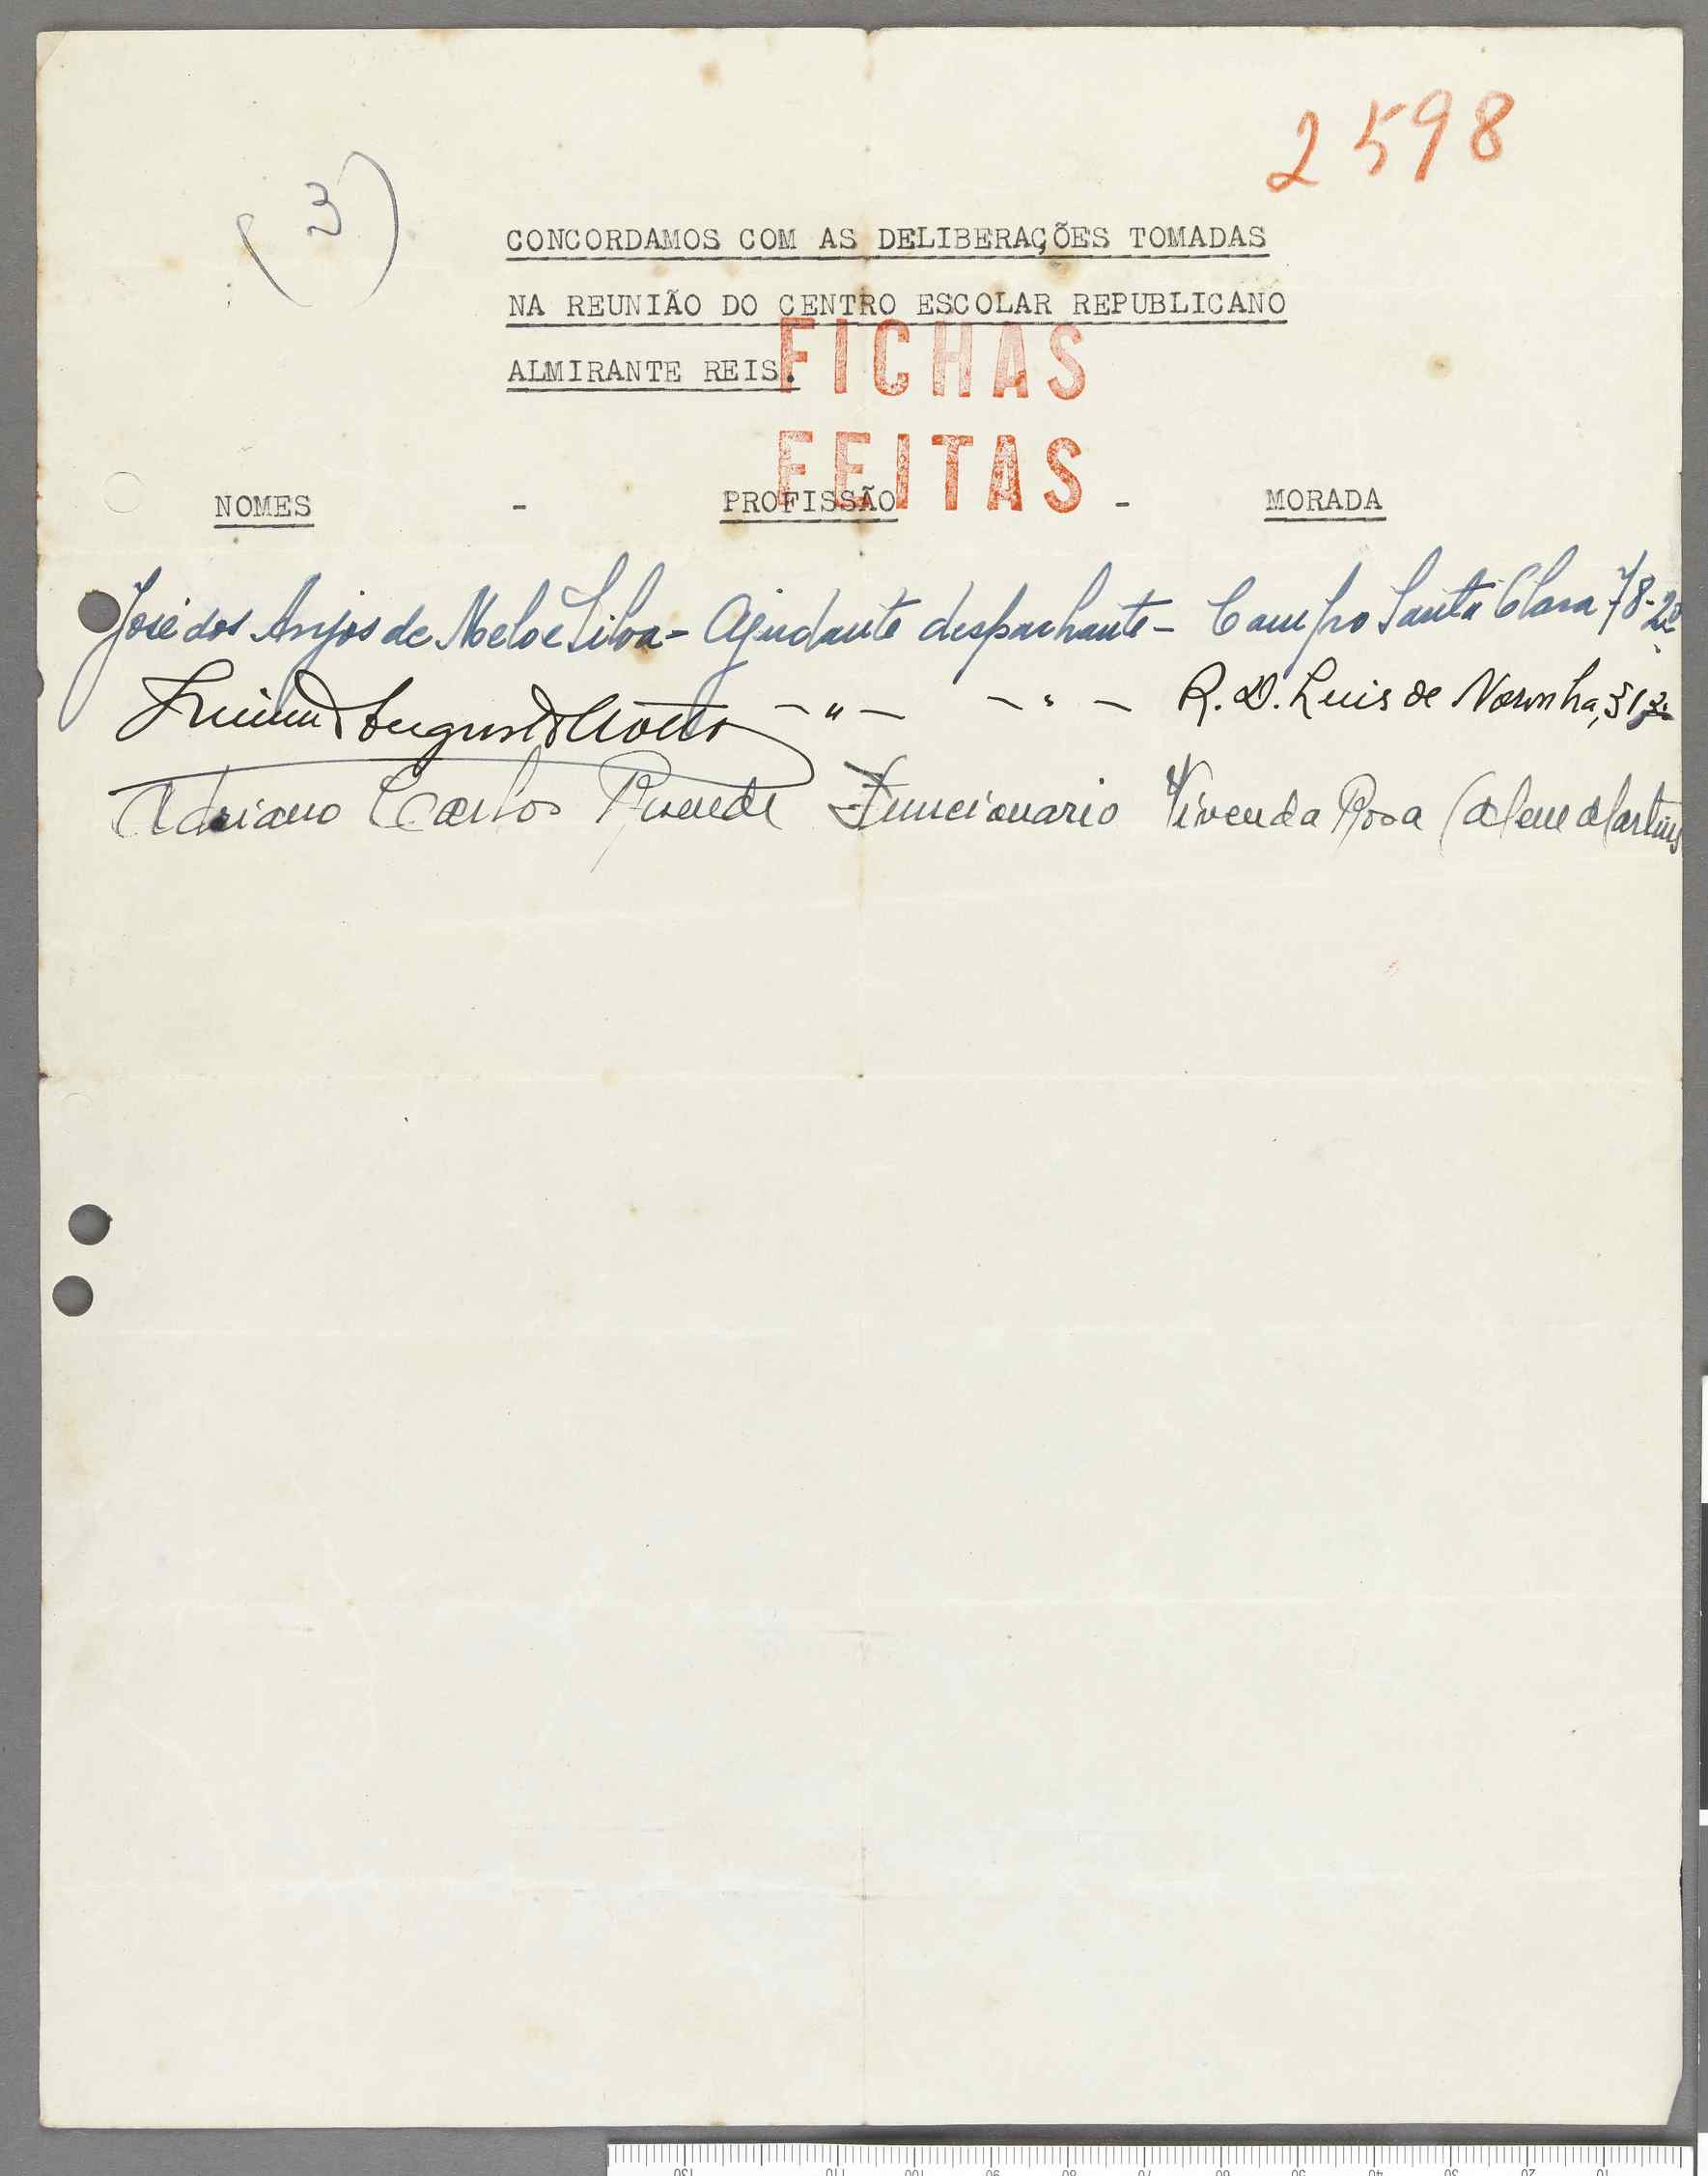 2598
(3)
CONCORDAMOS COM AS DELIBERAÇÕES TOMADAS
NA REUNIÃO DO CENTRO ESCOLAR REPUBLICANO
ALMIRANTE REIS.
FICHAS
FEITAS
NOMES - PROFISSÃO - MORADA
José dos Anjos de Melo e Silva - Ajudante despachante - Campo Santa Clara 78-2º
Augusto - " - - " - R. D. Luis de Noronha, 31
Adriano Carlos Funcionario Vivenda Rosa (Alem Martins